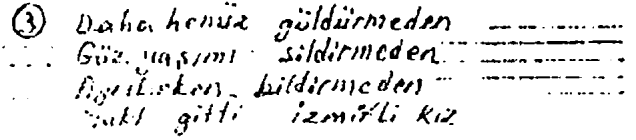 ③ Daha henüz güldürmeden
Göz yaşımı sildirmeden
Ayrılırken bildirmeden
gitti İzmirli kız